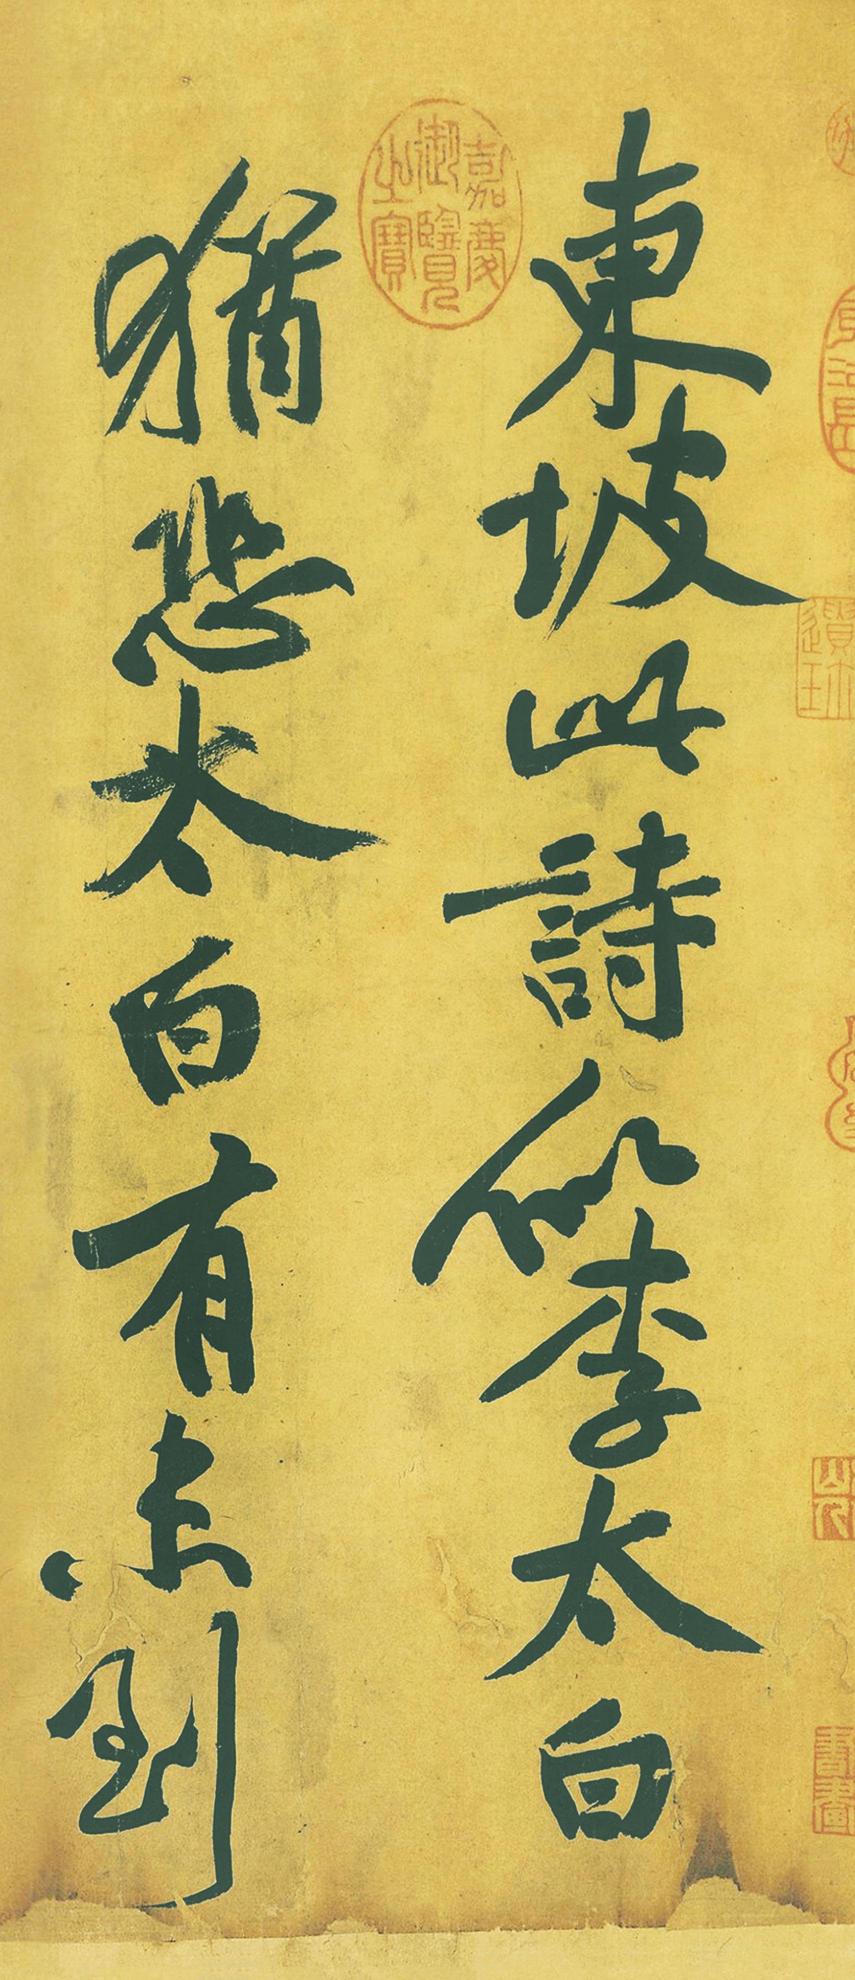 東坡此詩似李太白
猶恐太白有未到
嘉慶
御覽
之寶
書畫